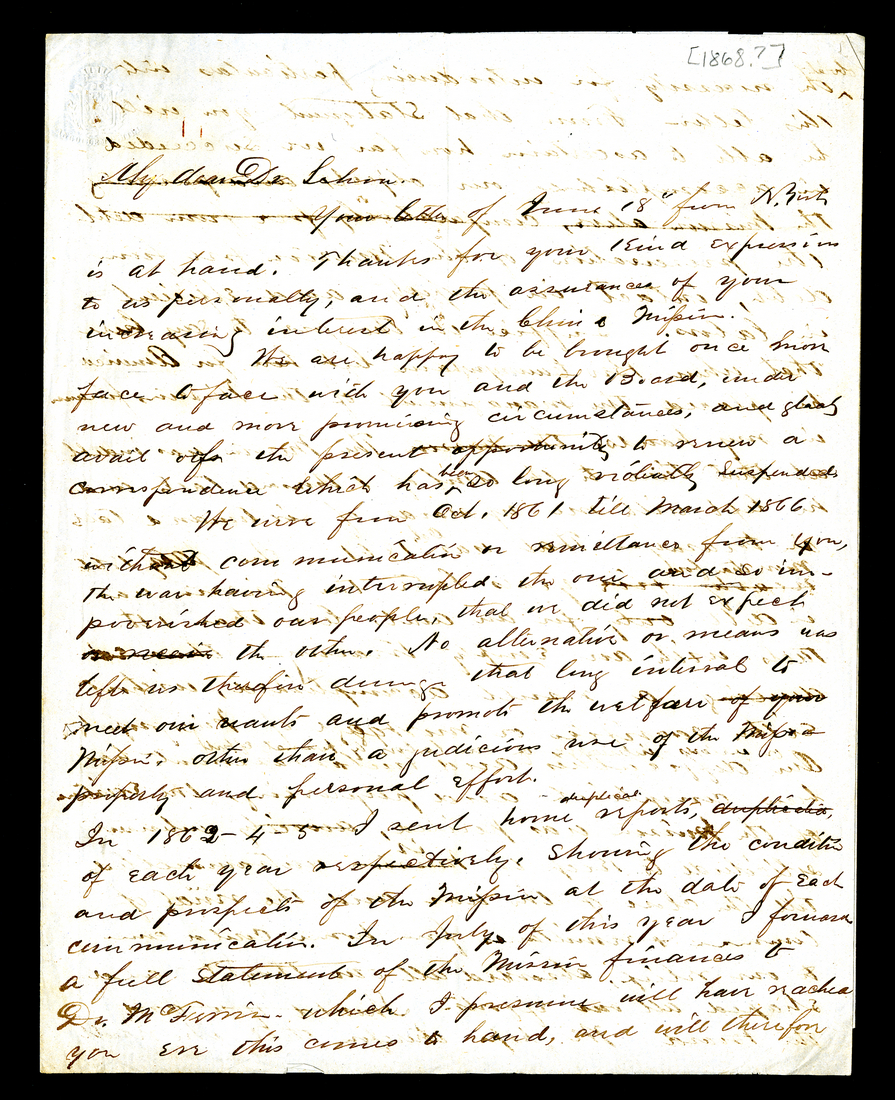 [1868.?]
My dear Dr. Sehon.
Your letter of June 18" from N.
is at hand. Thanks for your kind expression
to us personally, and the assurances of your
increasing interest in the China Mission.
We are happy to be brought once more
face to face with you and the Board, under
new and more promising circumstances, and gladly
avail of the present opportunity to renew a
correspondence which has been so long violently suspended.
We were from Oct. 1861 till March 1866
without communication or remittance from you,
the war having interrupted the one and so im-
poverished our people, that we did not expect
the other. No alternative or means was
left us therefore during that long interval to
meet our wants and promote the welfare of your
Mission, other than a judicious use of the Mission
property and personal effort.
In 1862-4-5 I sent home duplicate reports, duplicate,
of each year respectively, showing the condition
and prospects of the Mission at the date of each
communication. In July of this year I forward
a full statement of the Mission finances to
Dr. McFerrin - which I presume will have reached
you ere this comes to hand, and will therefore